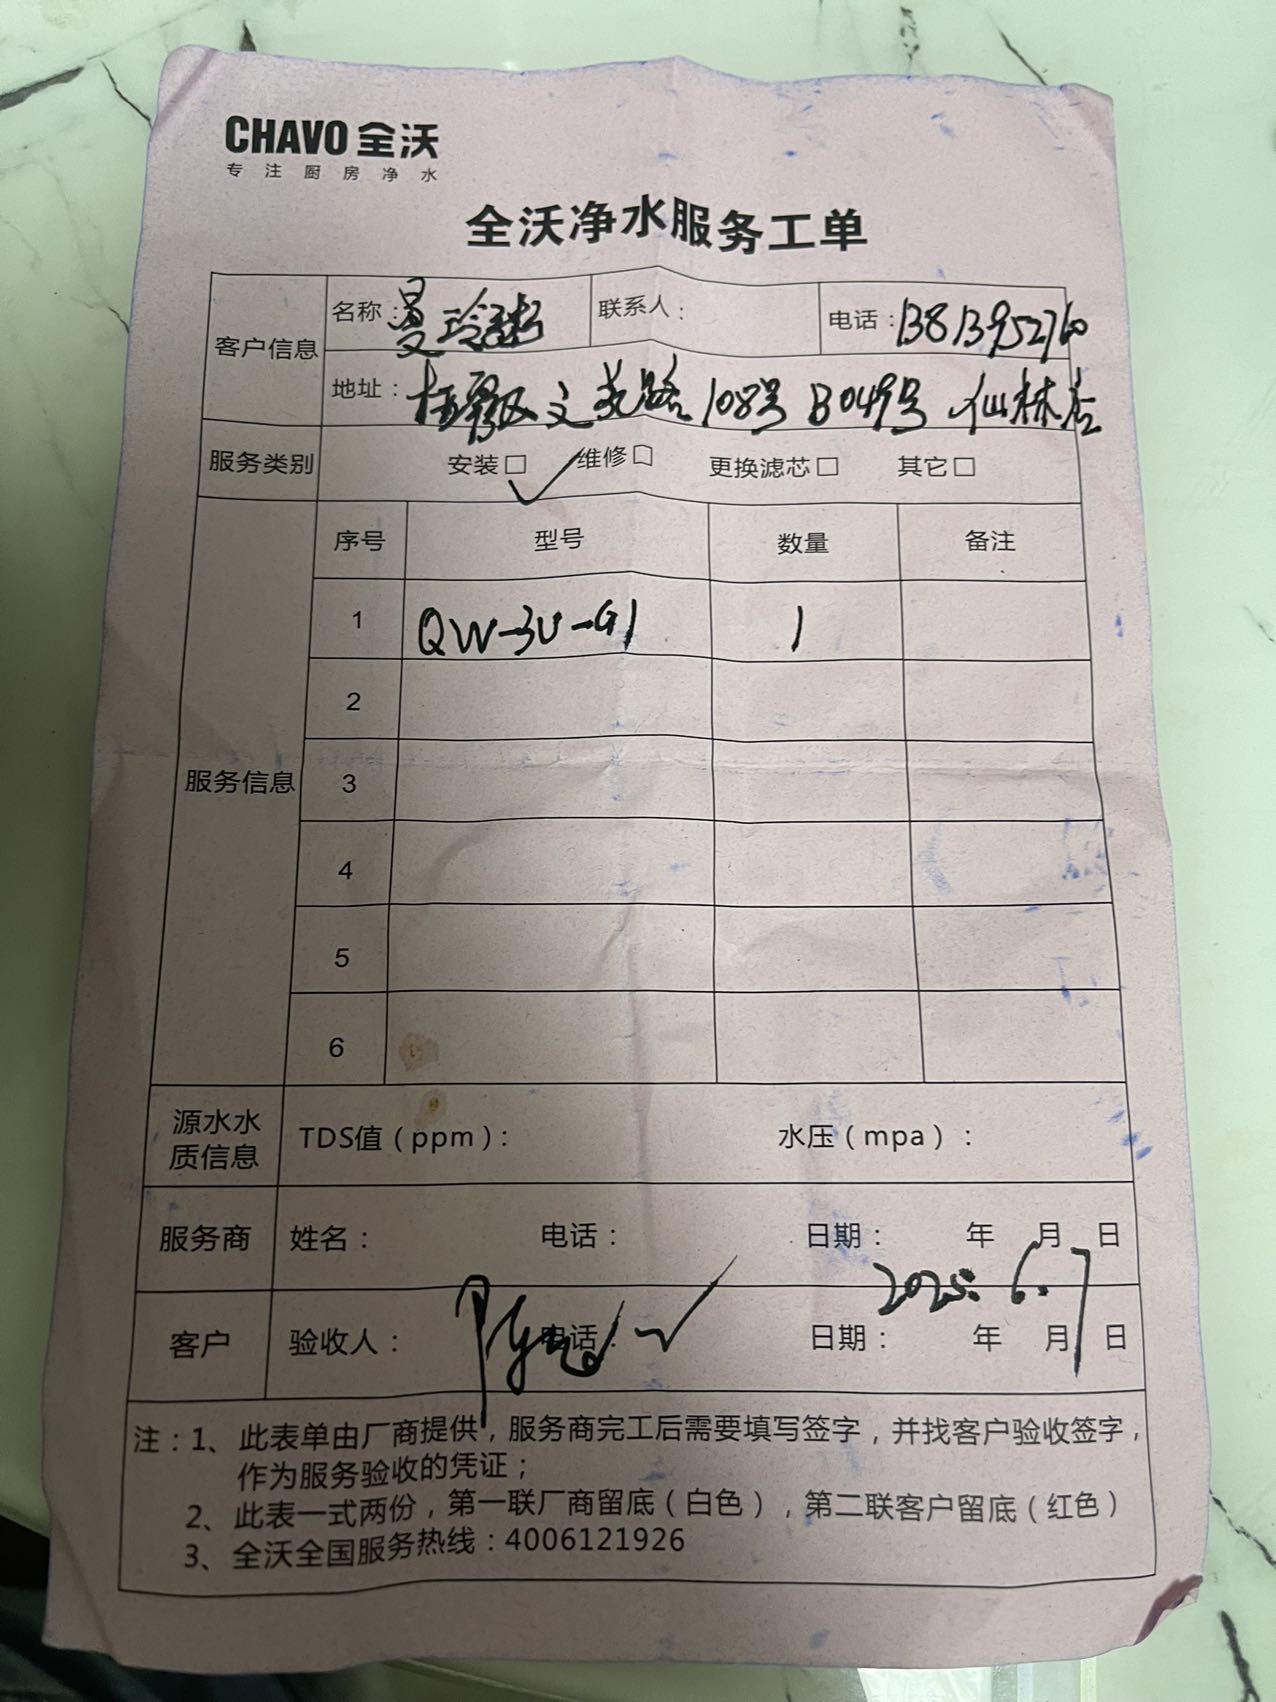 CHAVO 全沃
专注厨房净水
全沃净水服务工单
客户信息 名称：曼玲粥 联系人： 电话：13813952760
地址：栖霞区文苑路108号B049号 仙林店
服务类别 安装□ ✓ 维修□ 更换滤芯□ 其它□
服务信息 序号 型号 数量 备注
1 QW-3U-G1 1
2
3
4
5
6
源水水质信息 TDS值（ppm）： 水压（mpa）：
服务商 姓名： 电话： 日期： 年 月 日
2025. 6. 7
客户 验收人： 电话： ✓ 日期： 年 月 日
注：1、此表单由厂商提供，服务商完工后需要填写签字，并找客户验收签字，
作为服务验收的凭证；
2、此表一式两份，第一联厂商留底（白色），第二联客户留底（红色）
3、全沃全国服务热线：4006121926